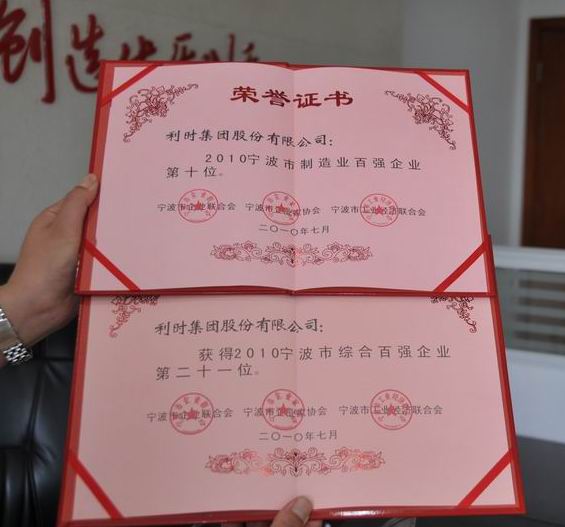 创造
荣誉证书
利时集团股份有限公司:
2010宁波市制造业百强企业
第十位。
宁波市企业联合会 宁波市企业家协会 宁波市工业经济联合会
二〇一〇年七月
利时集团股份有限公司:
获得2010宁波市综合百强企业
第二十一位。
宁波市企业联合会 宁波市企业家协会 宁波市工业经济联合会
二〇一〇年七月